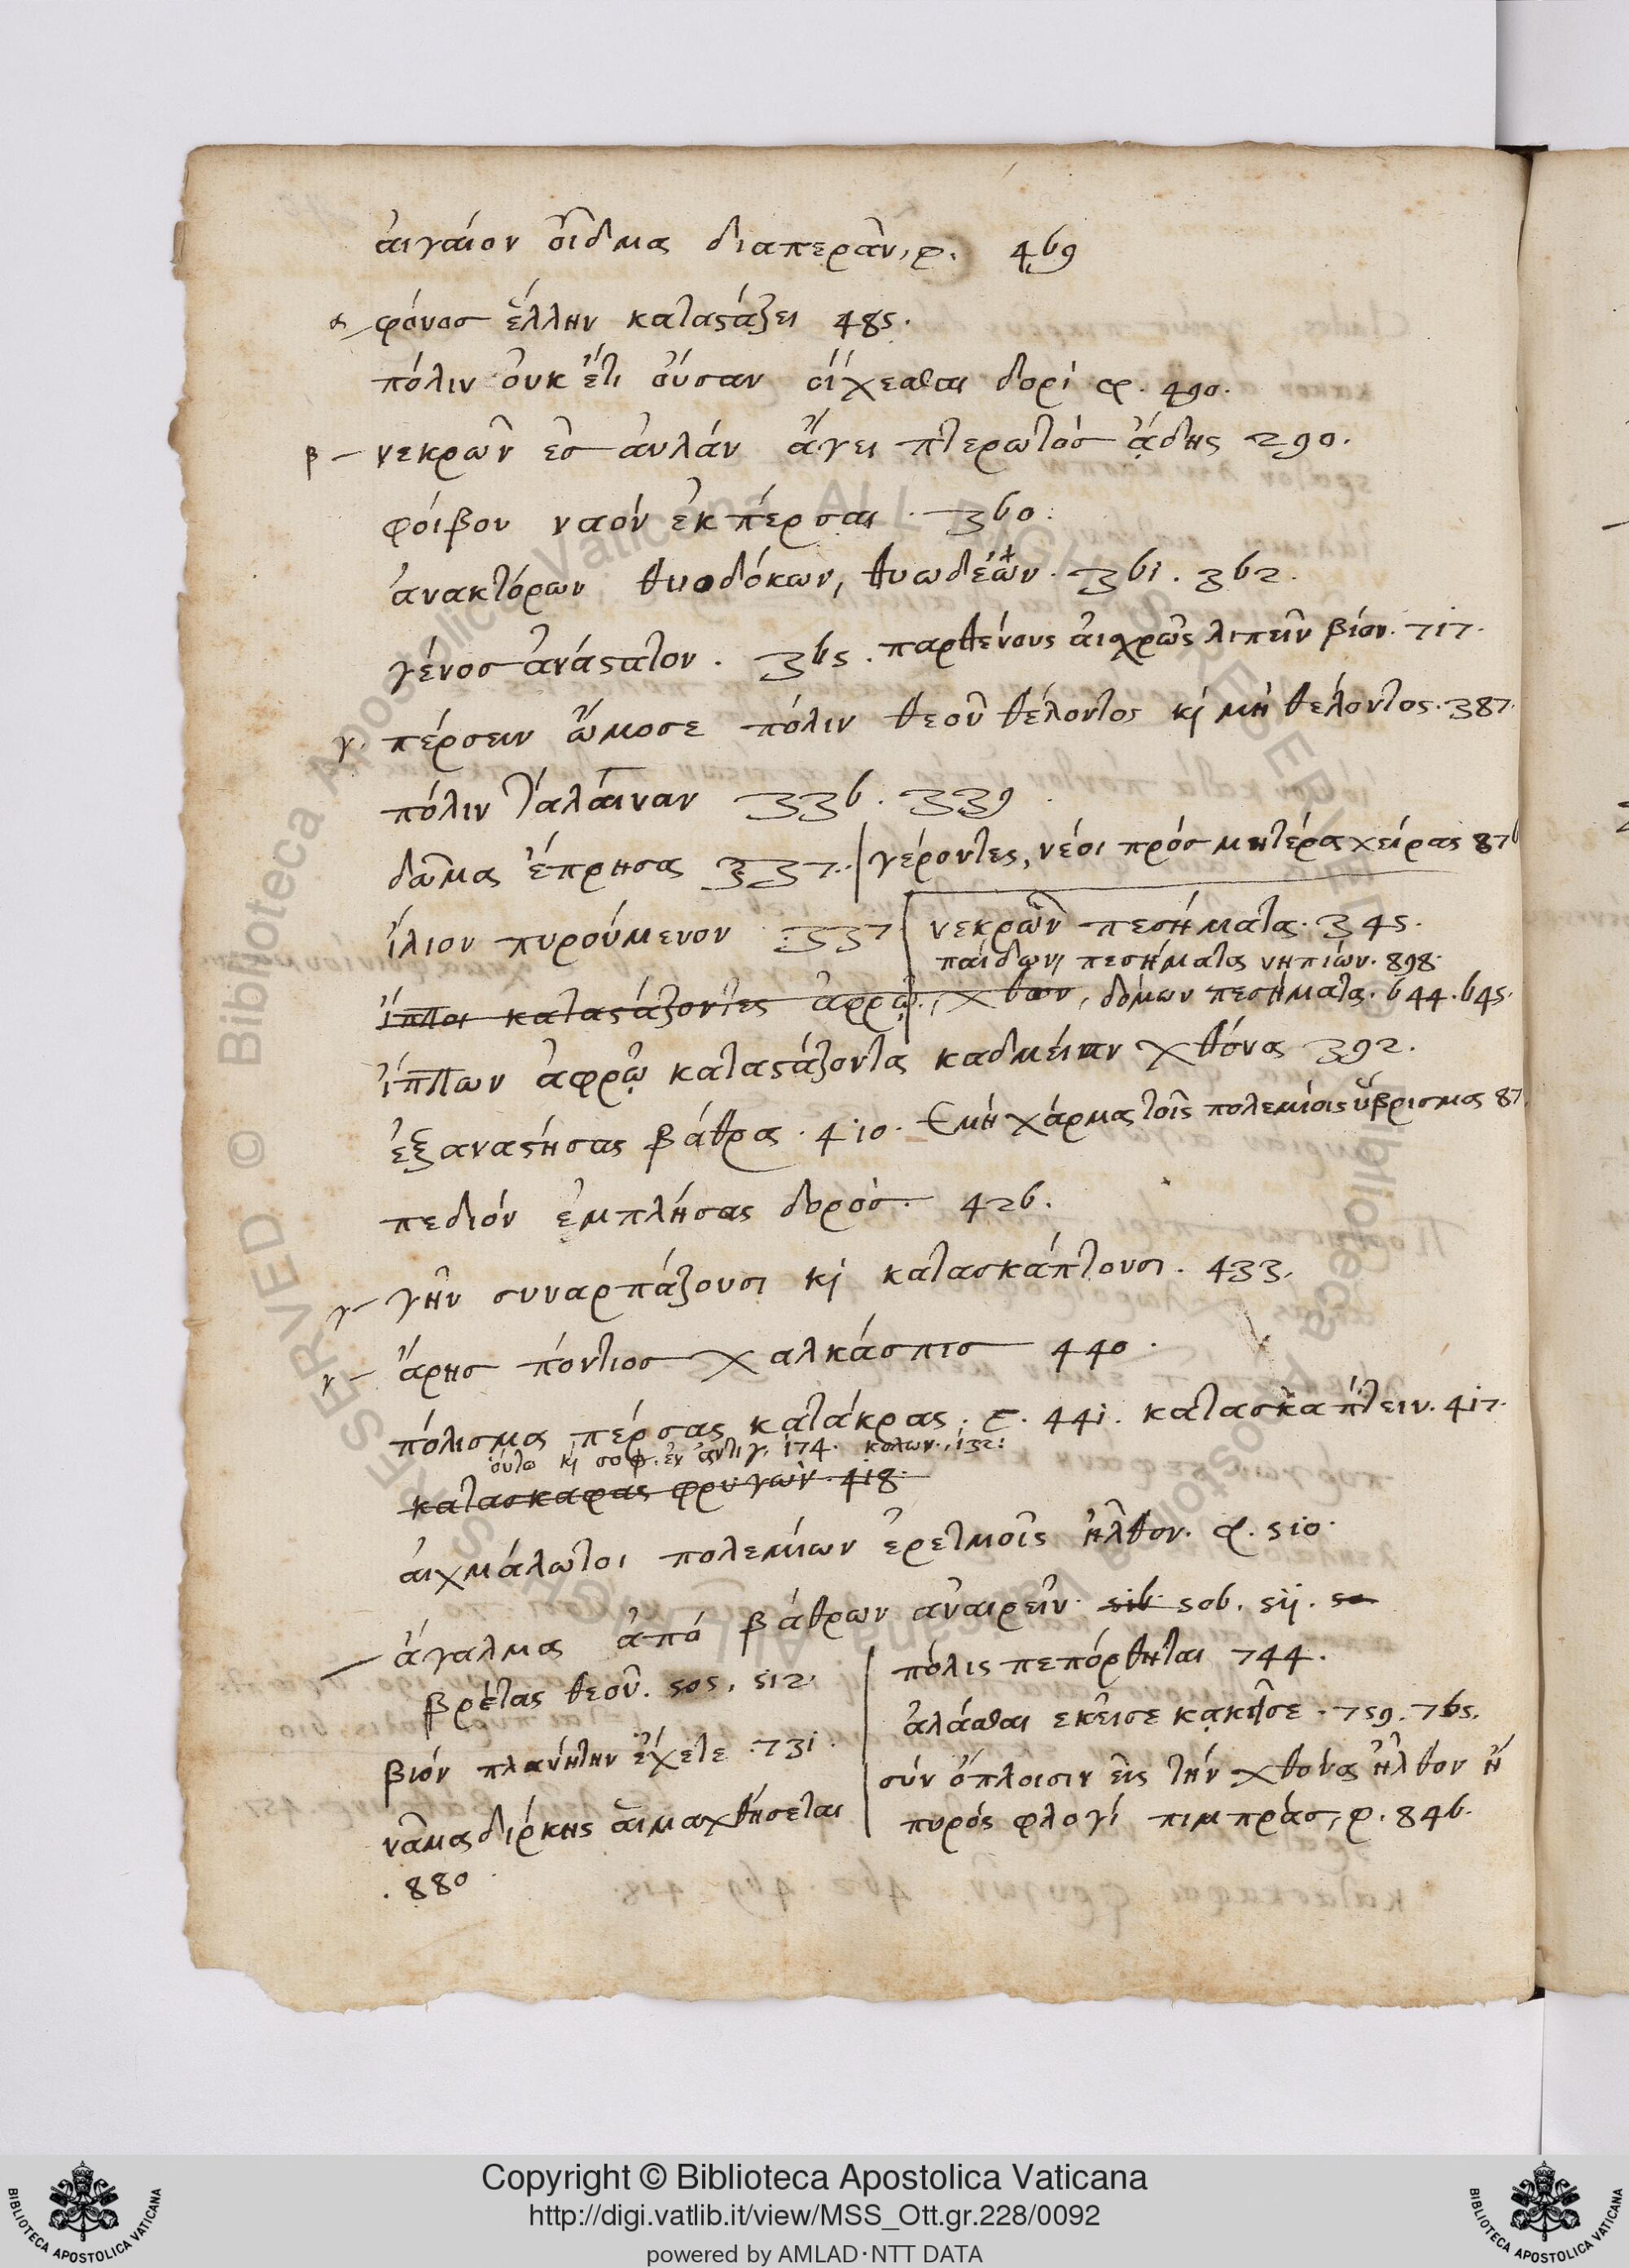 αἰγαίον οἶδμα διαπερᾶν, φ. 469
α φόνοσ ἕλλην καταστάξει 485.
πόλιν οὐκ ἔτι οὖσαν οἴχεσθαι δορὶ φ. 490.
β – νεκρῶν ἐσ αὐλάν ἄγει πτερωτόσ ᾅδης 290.
φοίβου ναόν ἐκπέρσαι. 360.
ἀνακτόρων θυοδόκων, θυωδέων. 361. 362.
γένοσ ἀνάστατον. 365. παρθένους αἰσχρῶς λιπεῖν βίον. 717.
γ. πέρσειν ὤμοσε πόλιν θεοῦ θέλοντος κὶ μὴ θέλοντος. 387.
πόλιν τάλαιναν 336. 339.
δῶμα ἔπρησα 337. γέροντες, νέοι πρόσ μητέρα χεῖρας 876
ἴλιον πυρούμενον 337 νεκρῶν πεσήματα. 345.
παίδων, πεσήματα νηπίων. 898.
ἵπποι καταστάζοντες ἀφρῷ., χθων, δόμων πεσήματα. 644. 645.
ἵππων ἀφρῷ καταστάζοντα καδμείαν χθόνα 392.
ἐξαναστήσας βάθρα. 410. ἐμή χάρμα τοῖς πολεμίοις ὕβρισμα 87
πεδιόν ἐμπλήσας δορόσ. 426.
γ – γῆν συναρπάζουσι κὶ κατασκάπτουσι. 433.
γ – ἄρησ πόντιοσ χαλκάσπισ 440.
πόλισμα πέρσας κατάκρας. ε. 441. κατασκάπτειν. 417.
οὕτω κὶ σοφ. ἐν ἀντιγ. 174. κολων., 132:
κατασκαφας φρυγῶν. 418.
αἰχμάλωτοι πολεμίων ἐρετμοῖς ἦλθον. φ. 510.
– ἄγαλμα ἀπό βάθρων ἀναιρεῖν. 516. 506. 511. 50
βρέτας θεοῦ. 505. 512.
βιόν πλανήτην ἔχετε. 731.
νᾶμα δίρκης αἱμαχθήσεται
. 880.
πόλις πεπόρθηται 744.
ἀλάσθαι ἐκεῖσε κᾀκεῖσε. 759. 765.
σύν ὅπλοισιν εἰς τήν χθόνα ἦλθον ἢ
πυρός φλογί πιμπράσ, φ. 846.
Copyright © Biblioteca Apostolica Vaticana
http://digi.vatlib.it/view/MSS_Ott.gr.228/0092
powered by AMLAD·NTT DATA